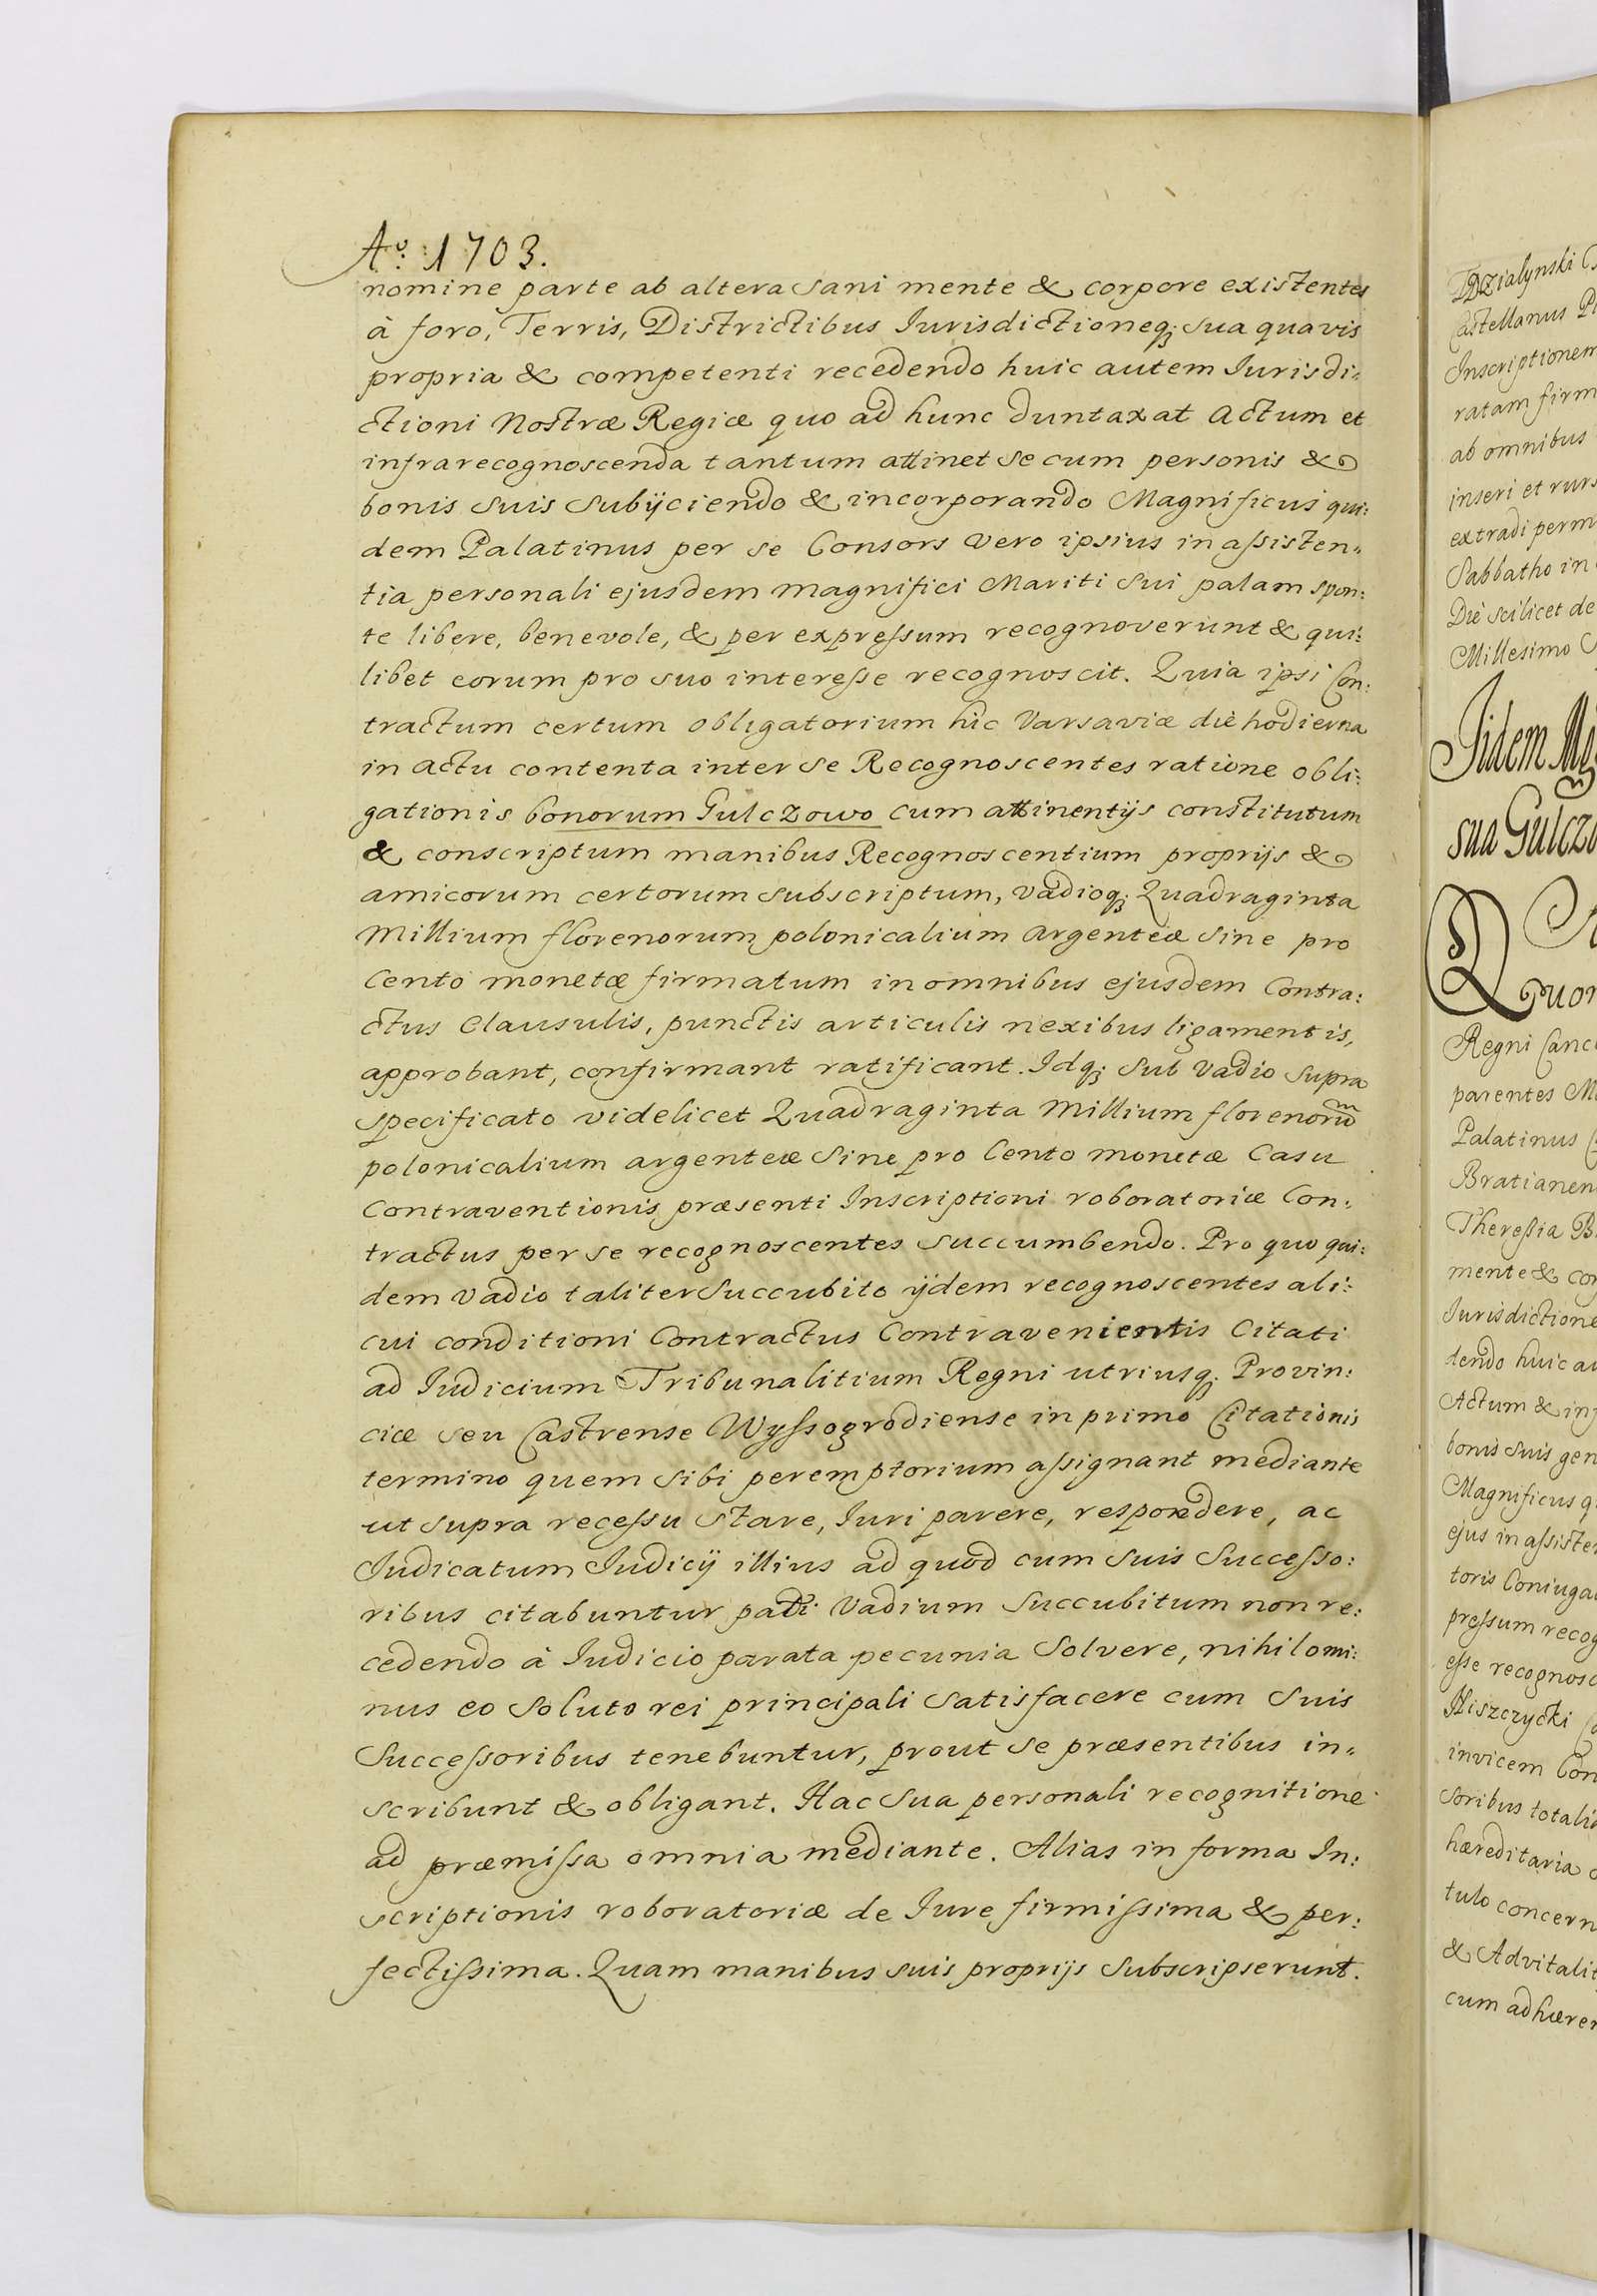 Aº: 1703.
nomine parte ab altera sani mente & corpore existentes
à foro, Terris, Districtibus Iurisdictioneq; sua quavis
propria & competenti recedendo huic autem Iurisdi„
ctioni Nostræ Regiæ quo ad hunc duntaxat Actum et
infrarecognoscenda tantum attinet se cum personis &
bonis suis subijciendo & incorporando Magnificus qui:
dem Palatinus per se Consors vero ipsius in aſsisten„
tia personali ejusdem Magnifici Mariti sui palam spon:
te libere, benevole, & per expreſsum recognoverunt & qui:
libet eorum pro suo intereſse recognoscit. Quia ipsi Con:
tractum certum obligatorium hic Varsaviæ diè hodierna
in actu contenta inter se Recognoscentes ratione obli:
gationis bonorum Gulczowo cum attinentijs constitutum
& conscriptum manibus Recognoscentium proprijs &
amicorum certorum subscriptum, vadioq; Quadraginta
Millium florenorum polonicalium argenteæ sine pro
Cento monetæ firmatum in omnibus ejusdem Contra:
ctus Clausulis, punctis articulis nexibus ligamentis,
approbant, confirmant ratificant. Idq; sub vadio supra
specificato videlicet Quadraginta Millium florenorum
polonicalium argenteæ sine pro Cento monetæ Casu
Contraventionis præsenti Inscriptioni roboratoriæ Con:
tractus per se recognoscentes succumbendo. Pro quo qui:
dem vadio taliter succubito ijdem recognoscentes ali:
cui conditioni Contractus Contravenientis Citati
ad Iudicium Tribunalitium Regni utriusq; Provin:
ciæ seu Castrense Wyſsogrodiense in primo Citationis
termino quem sibi peremptorium aſsignant mediante
ut supra receſsu stare, Iuri parere, respondere, ac
Iudicatum Iudicij illius ad quod cum suis Succeſso:
ribus citabuntur pati Vadium succubitum non re:
cedendo à Iudicio parata pecunia Solvere, nihilomi:
nus eo soluto rei principali satisfacere cum suis
Succeſsoribus tenebuntur, prout se præsentibus in„
scribunt & obligant. Hac sua personali recognitione
ad præmiſsa omnia mediante. Alias in forma In:
scriptionis roboratoriæ de Iure firmiſsima & per:
fectiſsima. Quam manibus suis proprijs subscripserunt.
Dzialynski
Castellanus
Inscriptionem
ratam
ab omnibus
inseri et
extradi
Sabbatho in
Diè scilicet de
Millesimo
Iidem
sua
Regni
parentes
Palatinus
Thereſsia
mente &
huic
Actum &
bonis suis
Magnificus
ejus in
toris
preſsum
eſse
Hiszczycki
invicem
soribus
hæreditaria
tulo
&
cum